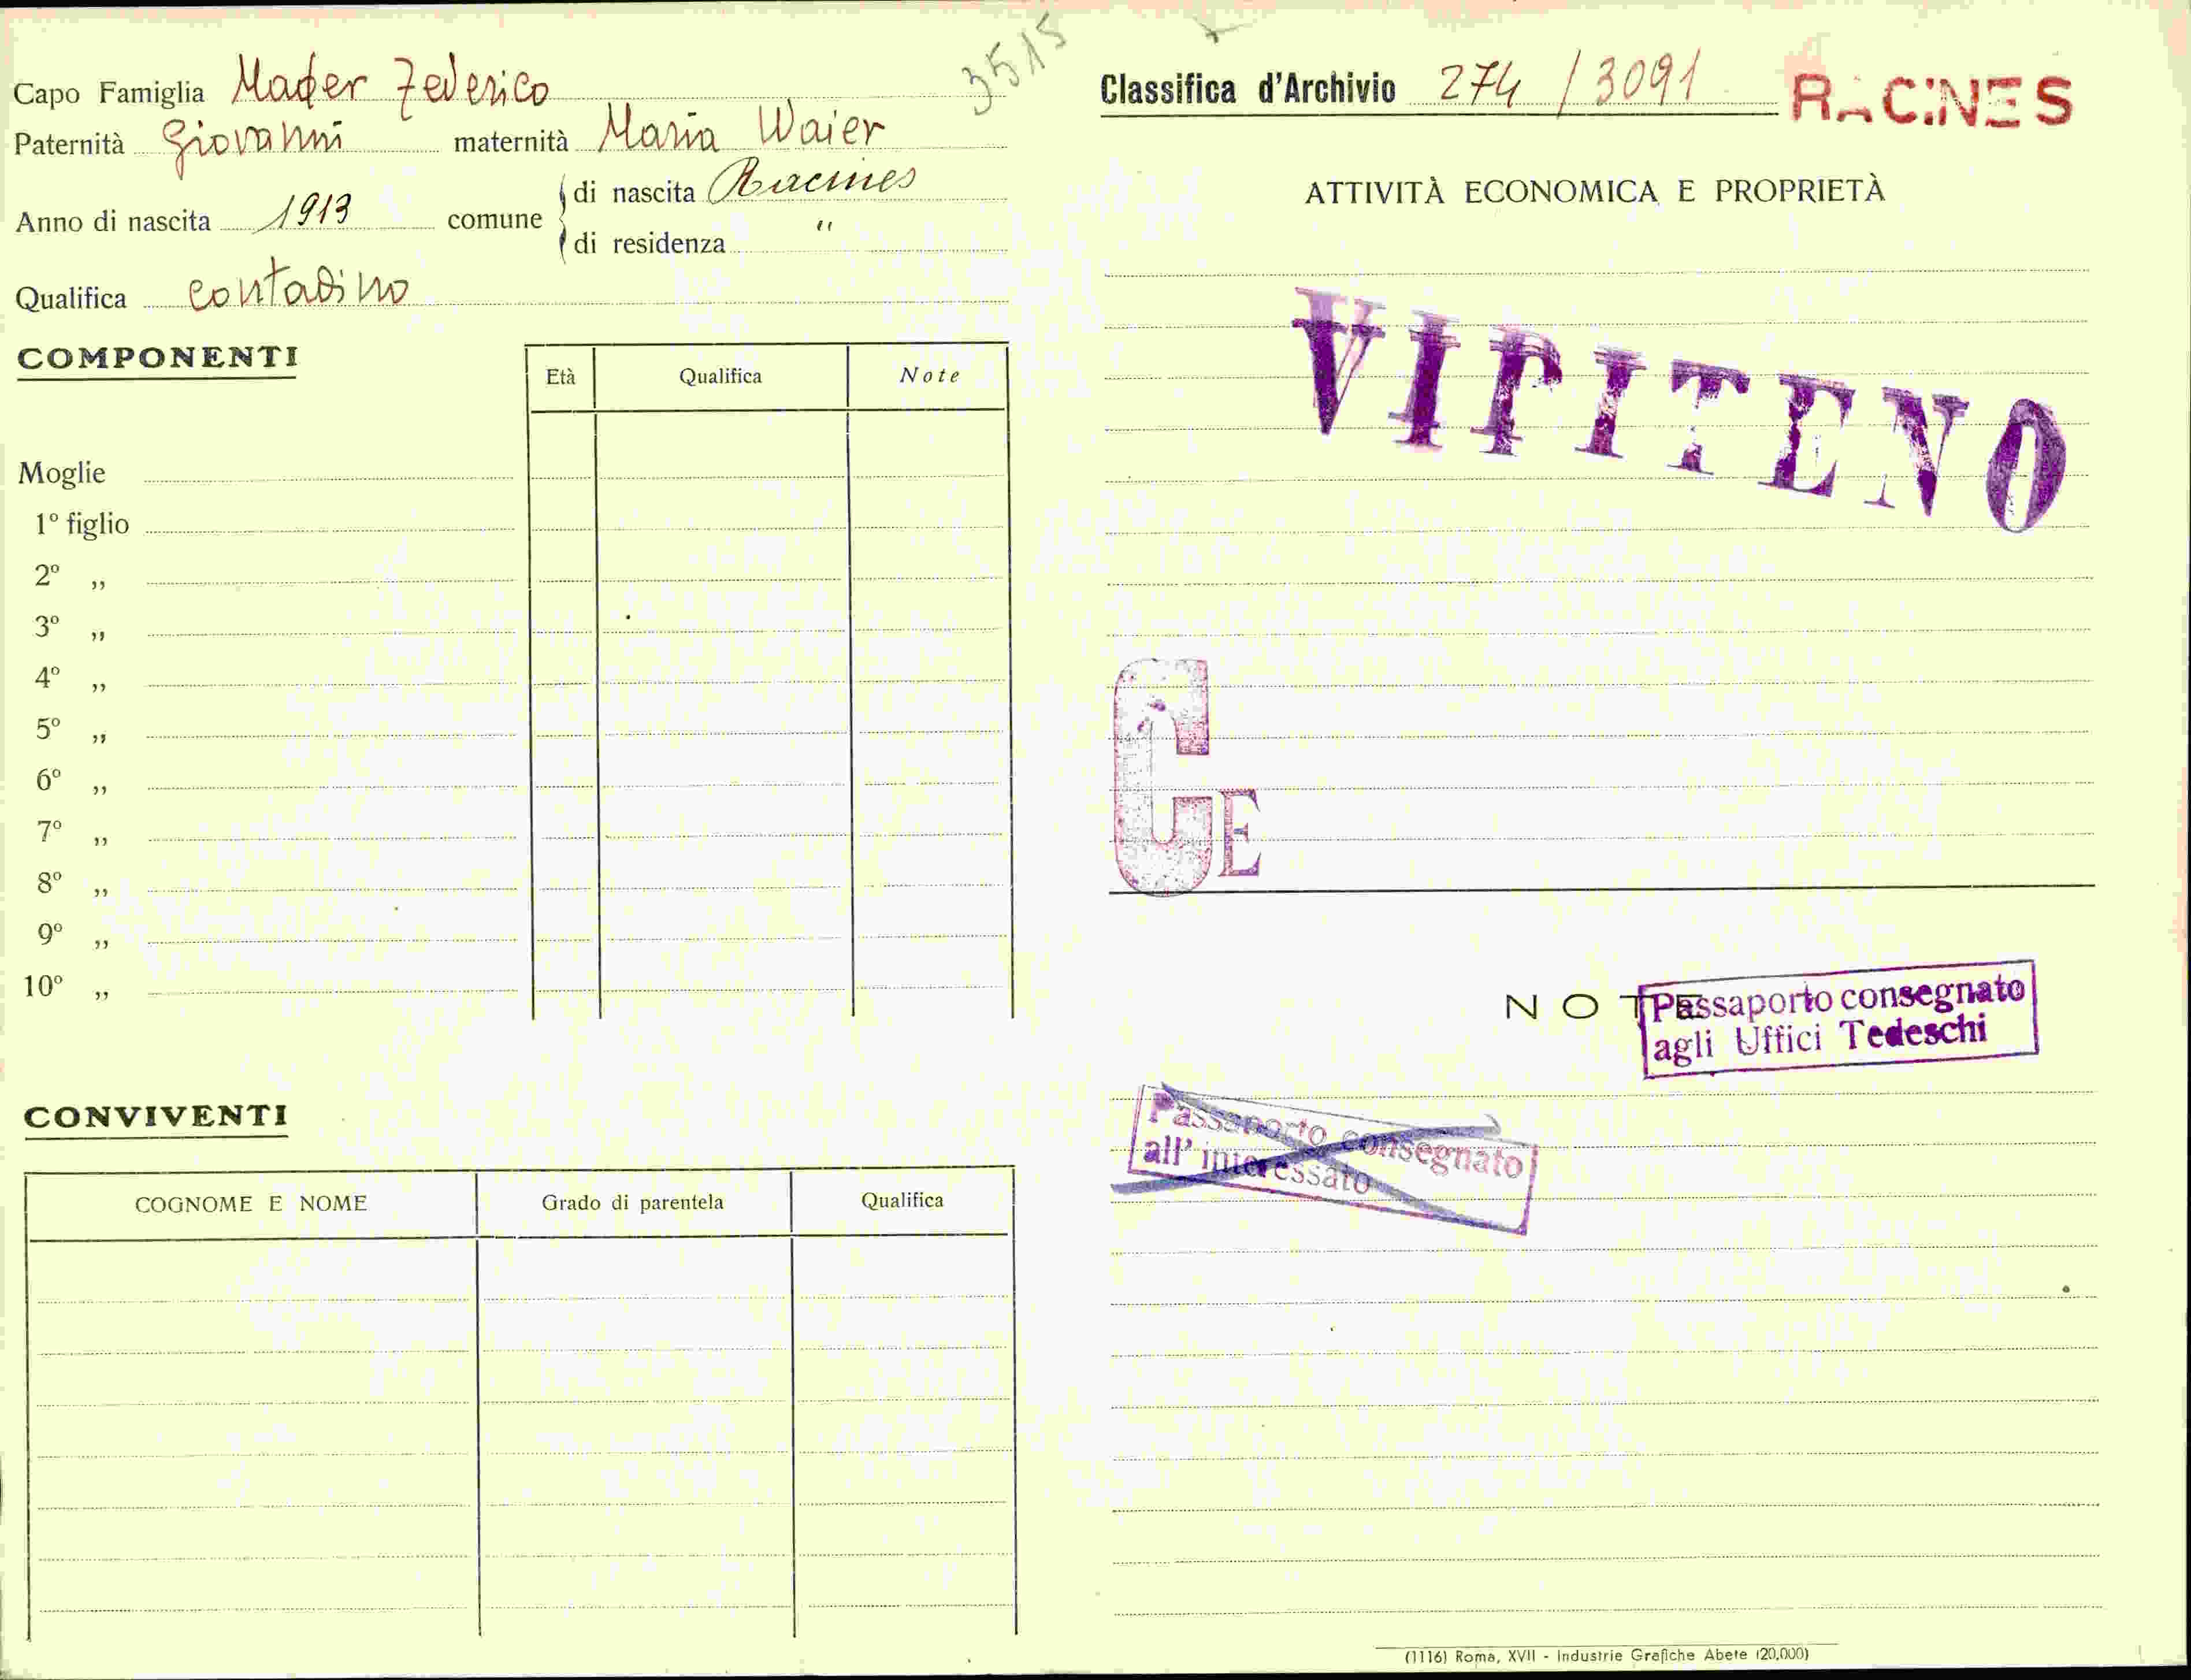 3515
Capo Famiglia Mader Federico
Paternità Giovanni maternità Maria Waier
Anno di nascita 1913 comune di nascita Racines
di residenza "
Qualifica contadino
COMPONENTI
Età Qualifica Note
Moglie
1º figlio
2º „
3º „
4º „
5º „
6º „
7º „
8º „
9º „
10º „
CONVIVENTI
COGNOME E NOME Grado di parentela Qualifica
Classifica d'Archivio 274 / 3091 RACINES
ATTIVITÀ ECONOMICA E PROPRIETÀ
VIPITENO
CE
NOTE
Passaporto consegnato
agli Uffici Tedeschi
Passaporto consegnato
all'interessato
(1116) Roma, XVII - Industrie Grafiche Abete (20.000)